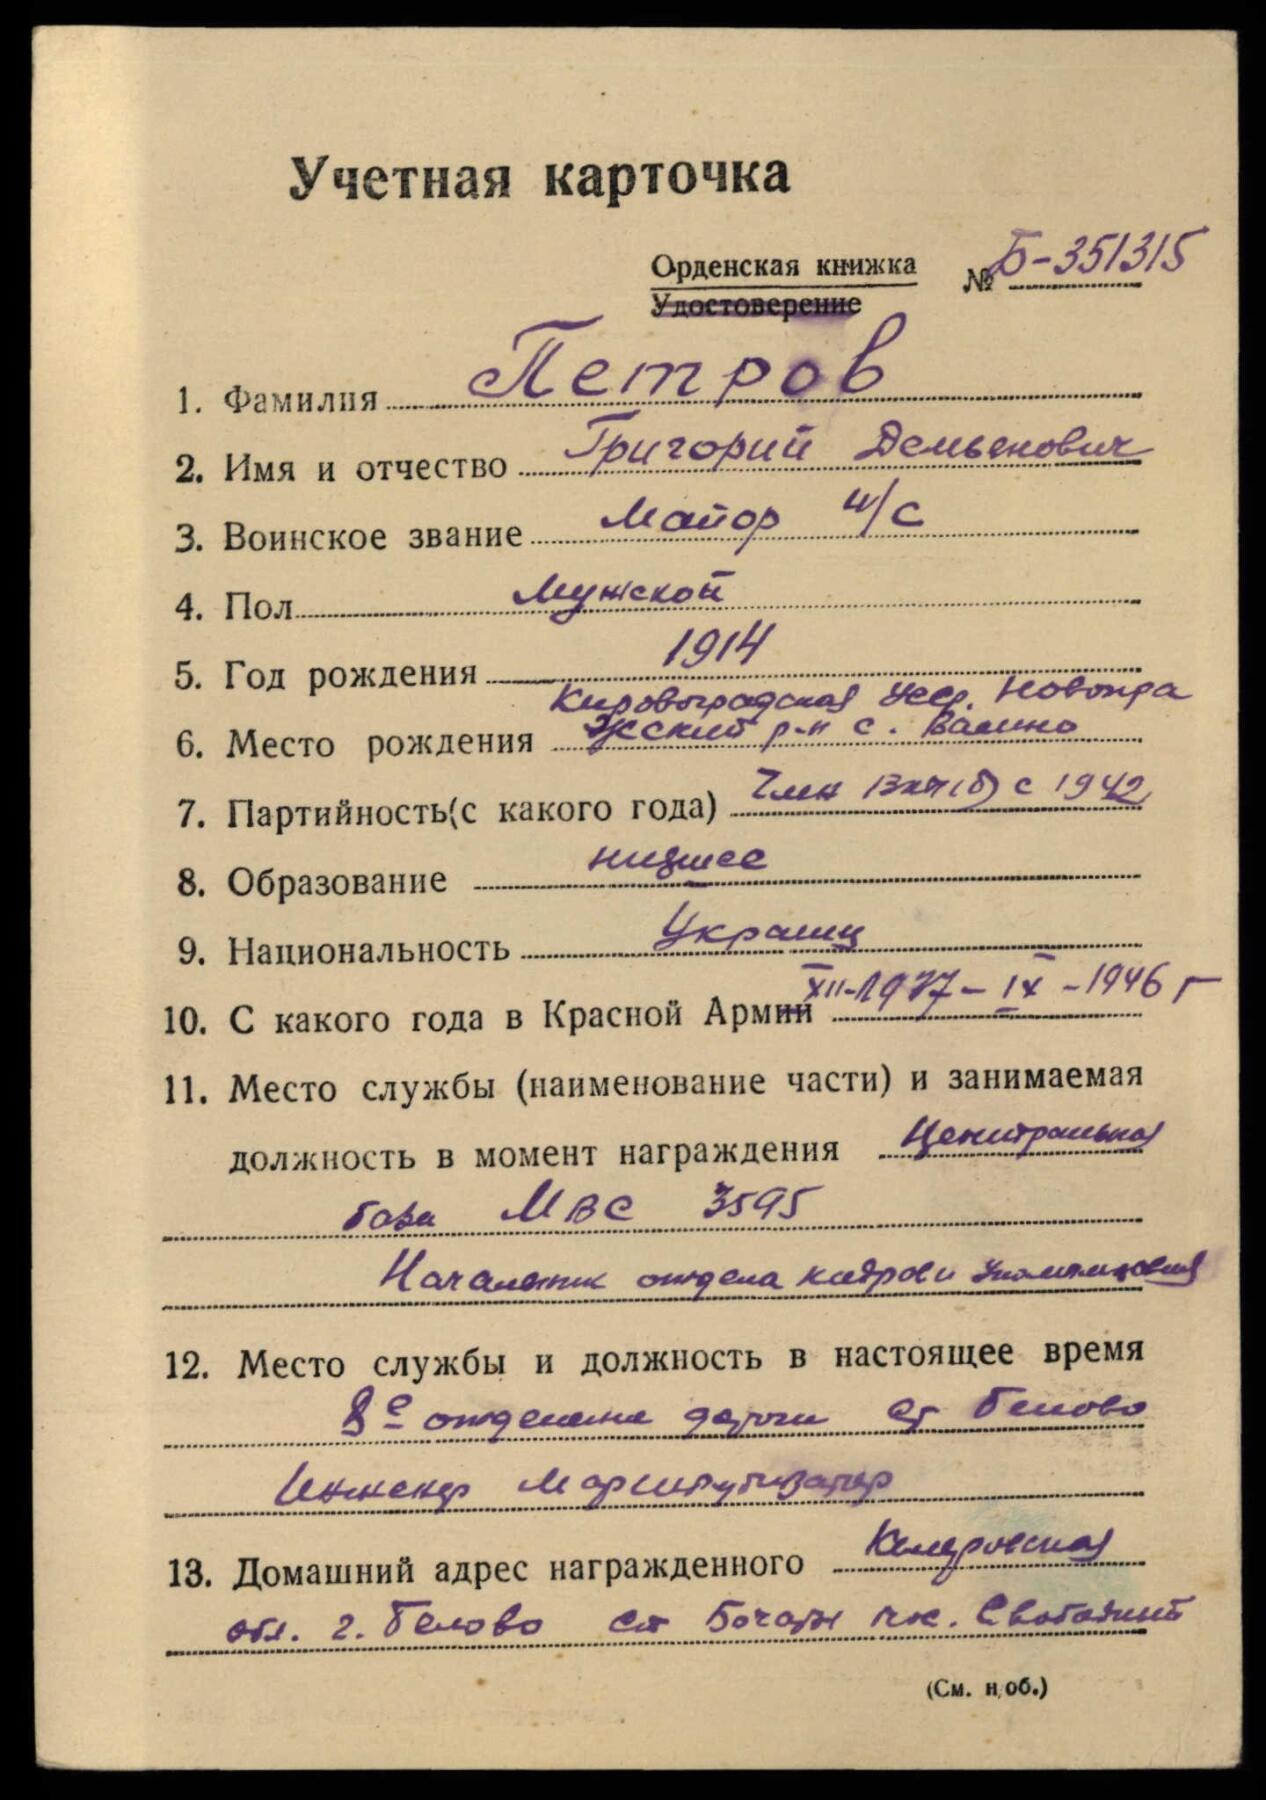 Учетная карточка
Орденская книжка № Б-351315
Удостоверение
1. Фамилия Петров
2. Имя и отчество Григорий Демьянович
3. Воинское звание Майор и/с
4. Пол Мужской
5. Год рождения 1914
Кировоградская усср. Новопра
6. Место рождения жский р-н с.
7. Партийность (с какого года) Член ВКП(б) с 1942
8. Образование низшее
9. Национальность Украинц
10. С какого года в Красной Армии XII-1937-IX-1946 г
11. Место службы (наименование части) и занимаемая
должность в момент награждения Центральная
база МВС 3595
Начальник отдела кадров и
12. Место службы и должность в настоящее время
8е отделение дороги ст Белово
Инженер Маршрутизатор
13. Домашний адрес награжденного Кемеровская
обл. г. Белово ст Бочаты
(См. н/об.)